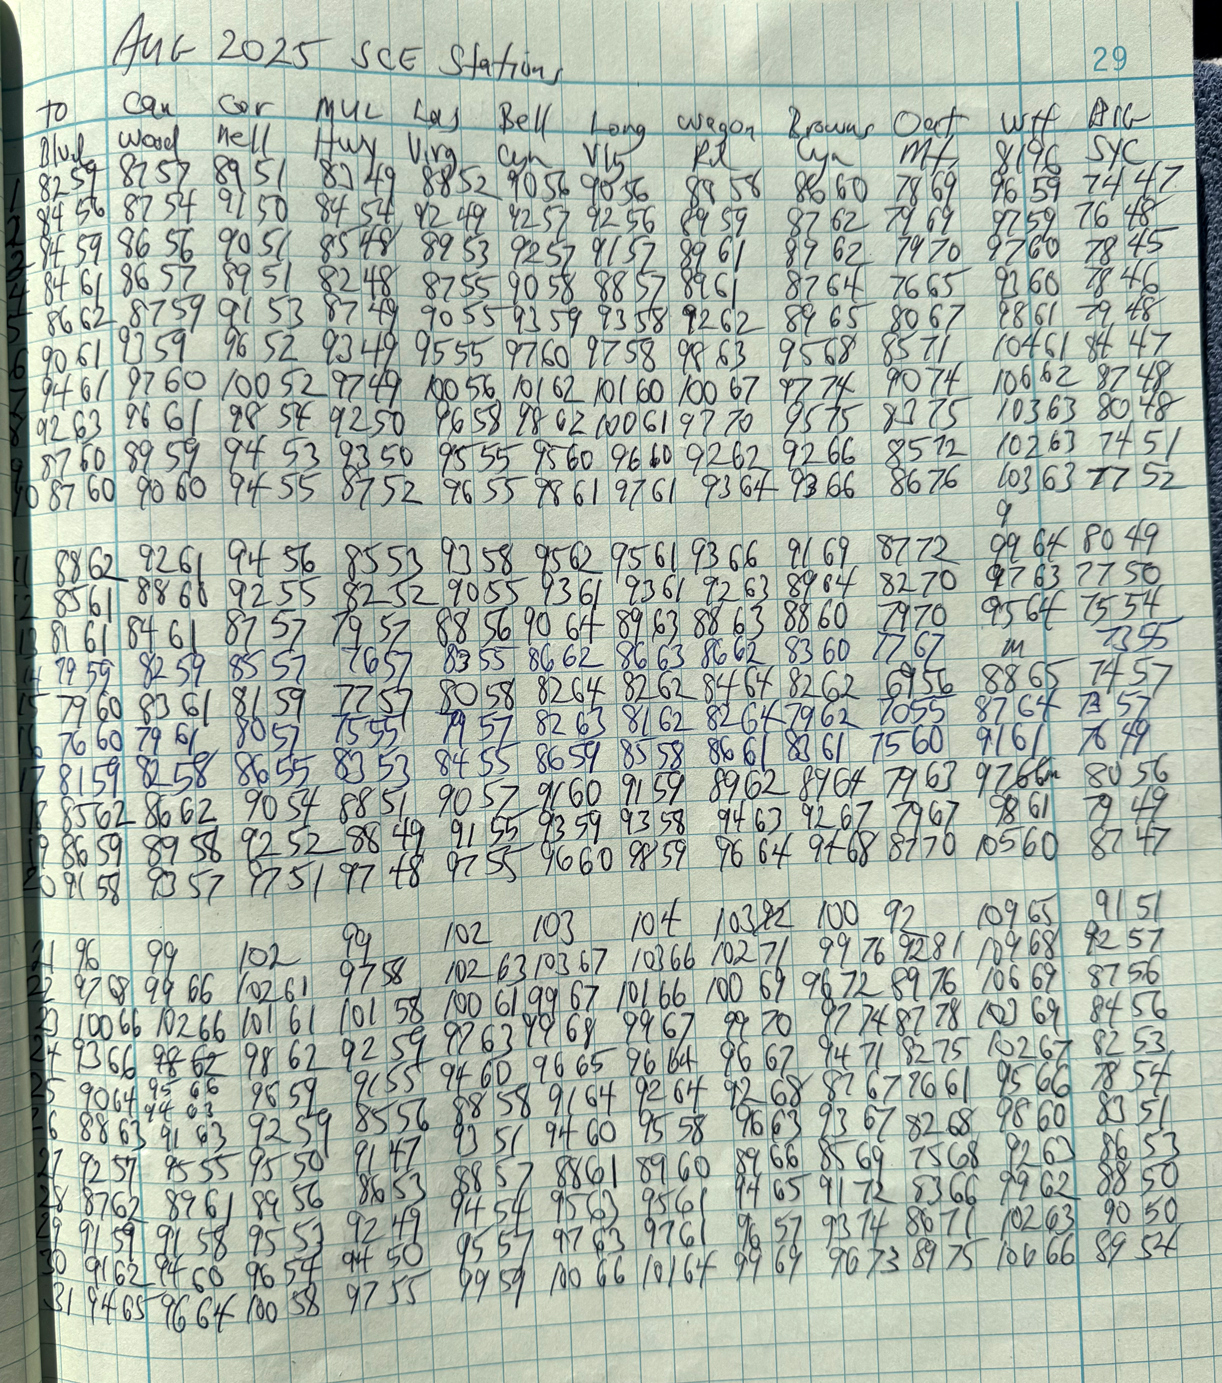 Aug 2025 SCE Stations 29
TO Can Cor MUL Las Bell Long Wagon Browns Oat Wtf
Blvd wood nell Hwy Virg Cyn Vly Rd Cyn Mt 8196 SYC
1 82 59 87 57 89 51 83 49 88 52 90 56 90 56 88 58 86 60 78 69 96 59 74 47
2 84 56 87 54 91 50 84 54 92 49 92 57 92 56 89 59 87 62 79 69 97 59 76 48
3 84 59 86 56 90 51 85 48 89 53 92 57 91 57 89 61 89 62 79 70 97 60 78 45
4 84 61 86 57 89 51 82 48 87 55 90 58 88 57 89 61 87 64 76 65 93 60 78 46
5 86 62 87 59 91 53 87 49 90 55 93 59 93 58 92 62 89 65 80 67 98 61 79 48
6 90 61 93 59 96 52 93 49 95 55 97 60 97 58 98 63 95 68 85 71 104 61 84 47
7 94 61 97 60 100 52 97 49 100 56 101 62 101 60 100 67 97 74 90 74 106 62 87 48
8 92 63 96 61 98 54 92 50 96 58 98 62 100 61 97 70 95 75 83 75 103 63 80 48
9 87 60 89 59 94 53 93 50 95 55 95 60 96 60 92 62 92 66 85 72 102 63 74 51
10 87 60 90 60 94 55 87 52 96 55 98 61 97 61 93 64 93 66 86 76 103 63 77 52
9
11 88 62 92 61 94 56 85 53 93 58 95 62 95 61 93 66 91 69 87 72 99 64 80 49
12 85 61 88 60 92 55 82 52 90 55 93 61 93 61 92 63 89 64 82 70 97 63 77 50
13 81 61 84 61 87 57 79 57 88 56 90 64 89 63 88 63 88 60 79 70 95 64 75 54
14 79 59 82 59 85 57 76 57 83 55 86 62 86 63 86 62 83 60 77 67 m 73 55
15 79 60 83 61 81 59 77 57 80 58 82 64 82 62 84 64 82 62 69 56 88 65 74 57
16 76 60 79 61 80 57 75 55 79 57 82 63 81 62 82 64 79 62 70 55 87 64 73 57
17 81 59 82 58 86 55 83 53 84 55 86 59 85 58 86 61 83 61 75 60 91 61 76 49
18 85 62 86 62 90 54 88 51 90 57 91 60 91 59 89 62 89 64 79 63 97 66m 80 56
19 86 59 89 58 92 52 88 49 91 55 93 59 93 58 94 63 92 67 79 67 98 61 79 49
20 91 58 93 57 97 51 97 48 97 55 96 60 98 59 96 64 94 68 87 70 105 60 87 47
21 96 99 102 99 102 103 104 103 100 92 109 65 91 51
22 97 68 99 66 102 61 97 58 102 63 103 67 103 66 102 71 99 76 92 81 109 68 92 57
23 100 66 102 66 101 61 101 58 100 61 99 67 101 66 100 69 96 72 89 76 106 69 87 56
24 93 66 98 62 98 62 92 59 97 63 99 68 99 67 99 70 97 74 87 78 103 69 84 56
25 90 64 95 66 96 59 91 55 94 60 96 65 96 64 96 67 94 71 82 75 102 67 82 53
94 63
26 88 63 91 63 92 59 85 56 88 58 91 64 92 64 92 68 87 67 76 61 95 66 78 54
27 92 57 95 55 95 50 91 47 93 51 94 60 95 58 96 63 93 67 82 68 98 60 83 51
28 87 62 89 61 89 56 86 53 88 57 88 61 89 60 89 66 85 69 75 68 92 63 86 53
29 91 59 91 58 95 53 92 49 94 54 95 63 95 61 94 65 91 72 83 66 99 62 88 50
30 91 62 94 60 96 54 94 50 95 57 97 63 97 61 96 57 93 74 86 71 102 63 90 50
31 94 65 96 64 100 58 97 55 99 59 100 66 101 64 99 69 96 73 89 75 106 66 89 54